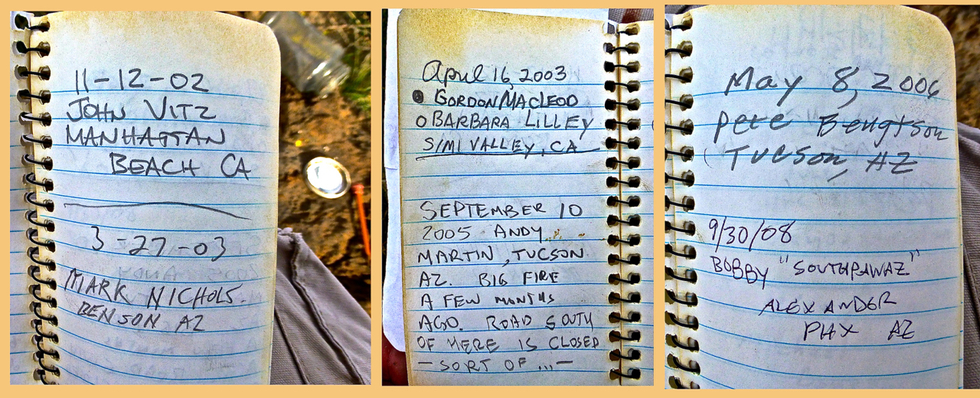 11-12-02
JOHN VITZ
MANHATTAN
BEACH CA
3-27-03
MARK NICHOLS.
BENSON AZ
April 16, 2003
GORDON MACLEOD
BARBARA LILLEY
SIMI VALLEY, CA
SEPTEMBER 10
2005 ANDY
MARTIN, TUCSON
AZ. BIG FIRE
A FEW MONTHS
AGO. ROAD SOUTH
OF HERE IS CLOSED
— SORT OF ... —
May 8, 2006
Pete Bengtson
Tucson, AZ
9/30/08
BOBBY "SOUTHPAWAZ"
ALEXANDER
PHX AZ